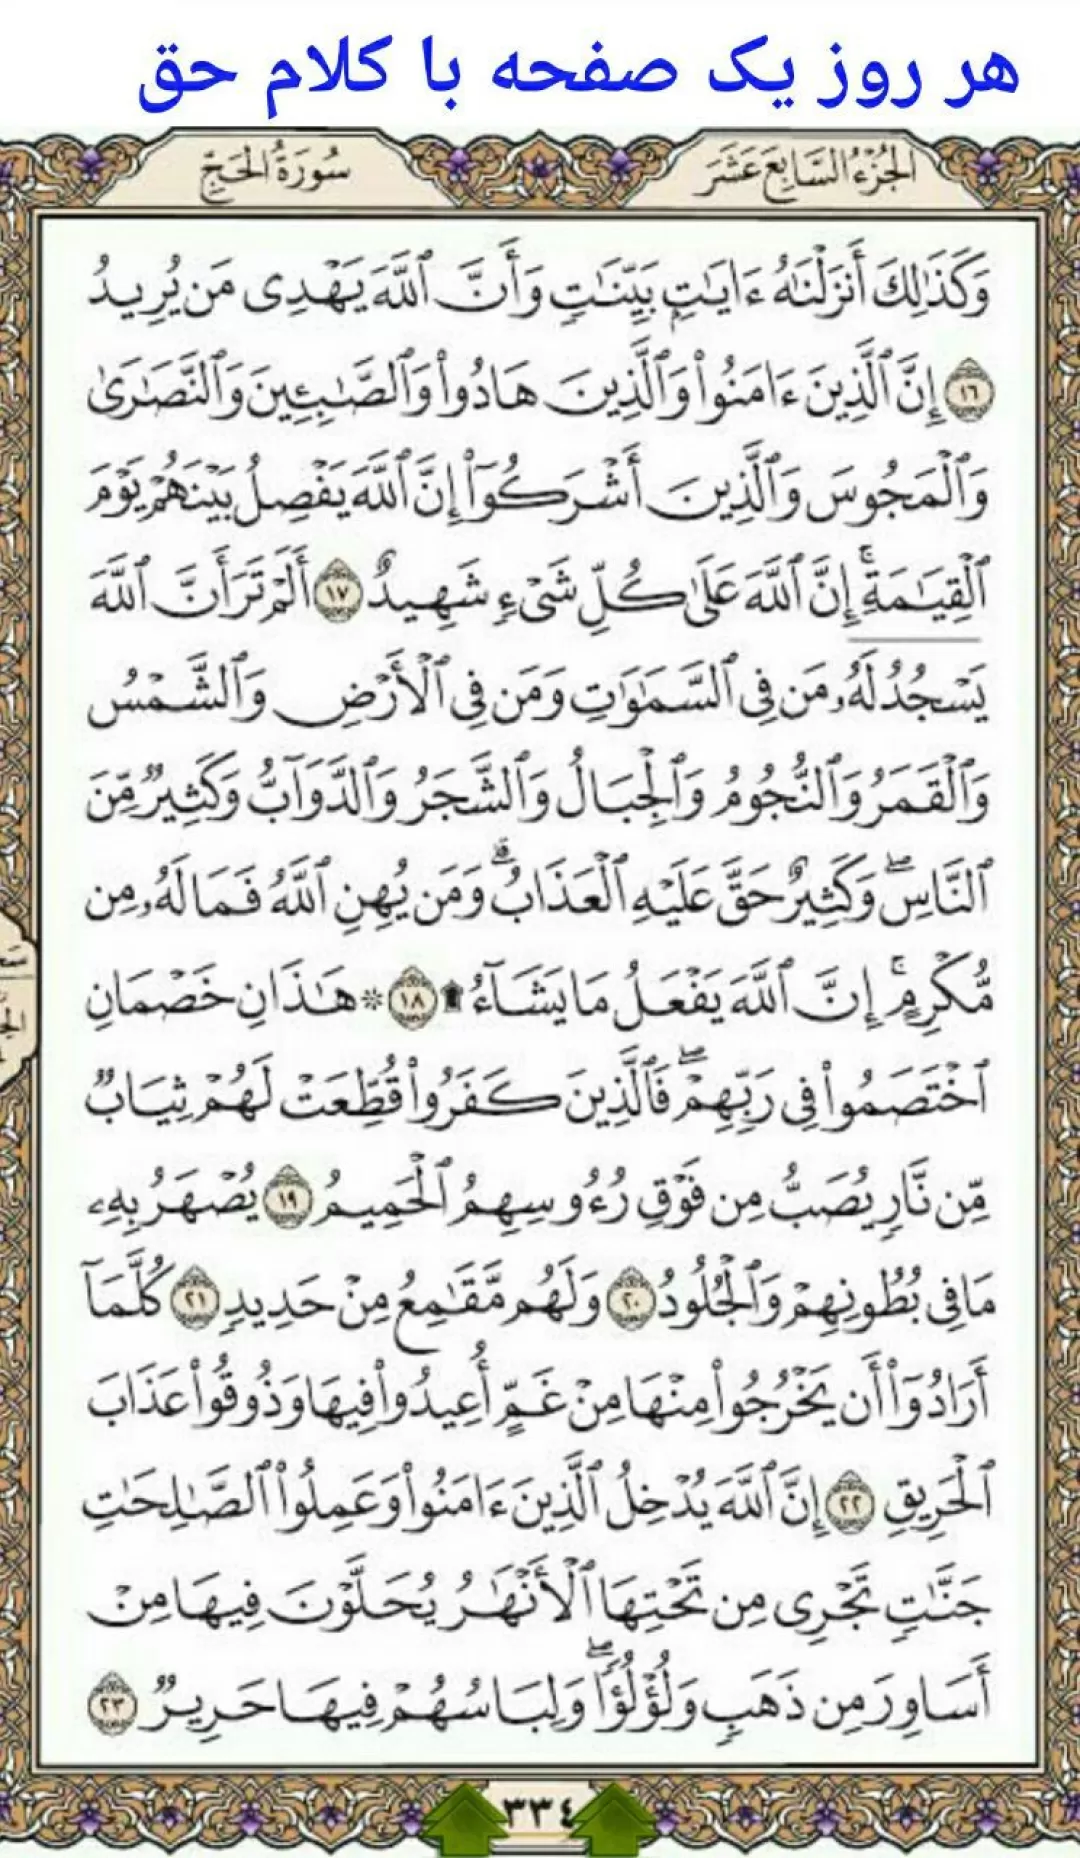 هر روز یک صفحه با کلام حق
الجُزْءُ السَّابِعَ عَشَرَ
سُورَةُ الحَجِّ
وَكَذَٰلِكَ أَنزَلْنَٰهُ ءَايَٰتٍۭ بَيِّنَٰتٍ وَأَنَّ ٱللَّهَ يَهْدِى مَن يُرِيدُ
١٦ إِنَّ ٱلَّذِينَ ءَامَنُوا۟ وَٱلَّذِينَ هَادُوا۟ وَٱلصَّٰبِـِٔينَ وَٱلنَّصَٰرَىٰ
وَٱلْمَجُوسَ وَٱلَّذِينَ أَشْرَكُوٓا۟ إِنَّ ٱللَّهَ يَفْصِلُ بَيْنَهُمْ يَوْمَ
ٱلْقِيَٰمَةِ ۚ إِنَّ ٱللَّهَ عَلَىٰ كُلِّ شَىْءٍ شَهِيدٌ ١٧ أَلَمْ تَرَ أَنَّ ٱللَّهَ
يَسْجُدُ لَهُۥ مَن فِى ٱلسَّمَٰوَٰتِ وَمَن فِى ٱلْأَرْضِ وَٱلشَّمْسُ
وَٱلْقَمَرُ وَٱلنُّجُومُ وَٱلْجِبَالُ وَٱلشَّجَرُ وَٱلدَّوَآبُّ وَكَثِيرٌ مِّنَ
ٱلنَّاسِ ۖ وَكَثِيرٌ حَقَّ عَلَيْهِ ٱلْعَذَابُ ۗ وَمَن يُهِنِ ٱللَّهُ فَمَا لَهُۥ مِن
مُّكْرِمٍ ۚ إِنَّ ٱللَّهَ يَفْعَلُ مَا يَشَآءُ ۩ ١٨ ۞ هَٰذَانِ خَصْمَانِ
ٱخْتَصَمُوا۟ فِى رَبِّهِمْ ۖ فَٱلَّذِينَ كَفَرُوا۟ قُطِّعَتْ لَهُمْ ثِيَابٌ
مِّن نَّارٍ يُصَبُّ مِن فَوْقِ رُءُوسِهِمُ ٱلْحَمِيمُ ١٩ يُصْهَرُ بِهِۦ
مَا فِى بُطُونِهِمْ وَٱلْجُلُودُ ٢٠ وَلَهُم مَّقَٰمِعُ مِنْ حَدِيدٍ ٢١ كُلَّمَآ
أَرَادُوٓا۟ أَن يَخْرُجُوا۟ مِنْهَا مِنْ غَمٍّ أُعِيدُوا۟ فِيهَا وَذُوقُوا۟ عَذَابَ
ٱلْحَرِيقِ ٢٢ إِنَّ ٱللَّهَ يُدْخِلُ ٱلَّذِينَ ءَامَنُوا۟ وَعَمِلُوا۟ ٱلصَّٰلِحَٰتِ
جَنَّٰتٍ تَجْرِى مِن تَحْتِهَا ٱلْأَنْهَٰرُ يُحَلَّوْنَ فِيهَا مِنْ
أَسَاوِرَ مِن ذَهَبٍ وَلُؤْلُؤًا ۖ وَلِبَاسُهُمْ فِيهَا حَرِيرٌ ٢٣
٣٣٤